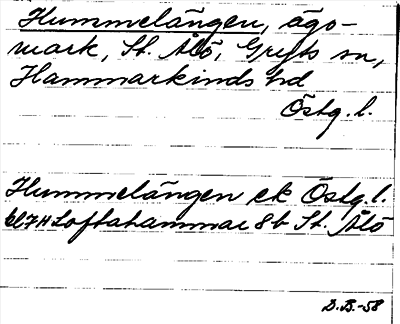 Hummelängen, ägo-
mark, St. Ålö, Gryts sn,
Hammarkinds hd
Östg. l.
Hummelängen ek Östg. l.
6E7H Loftahammar 8b St. Ålö
D.B.-58